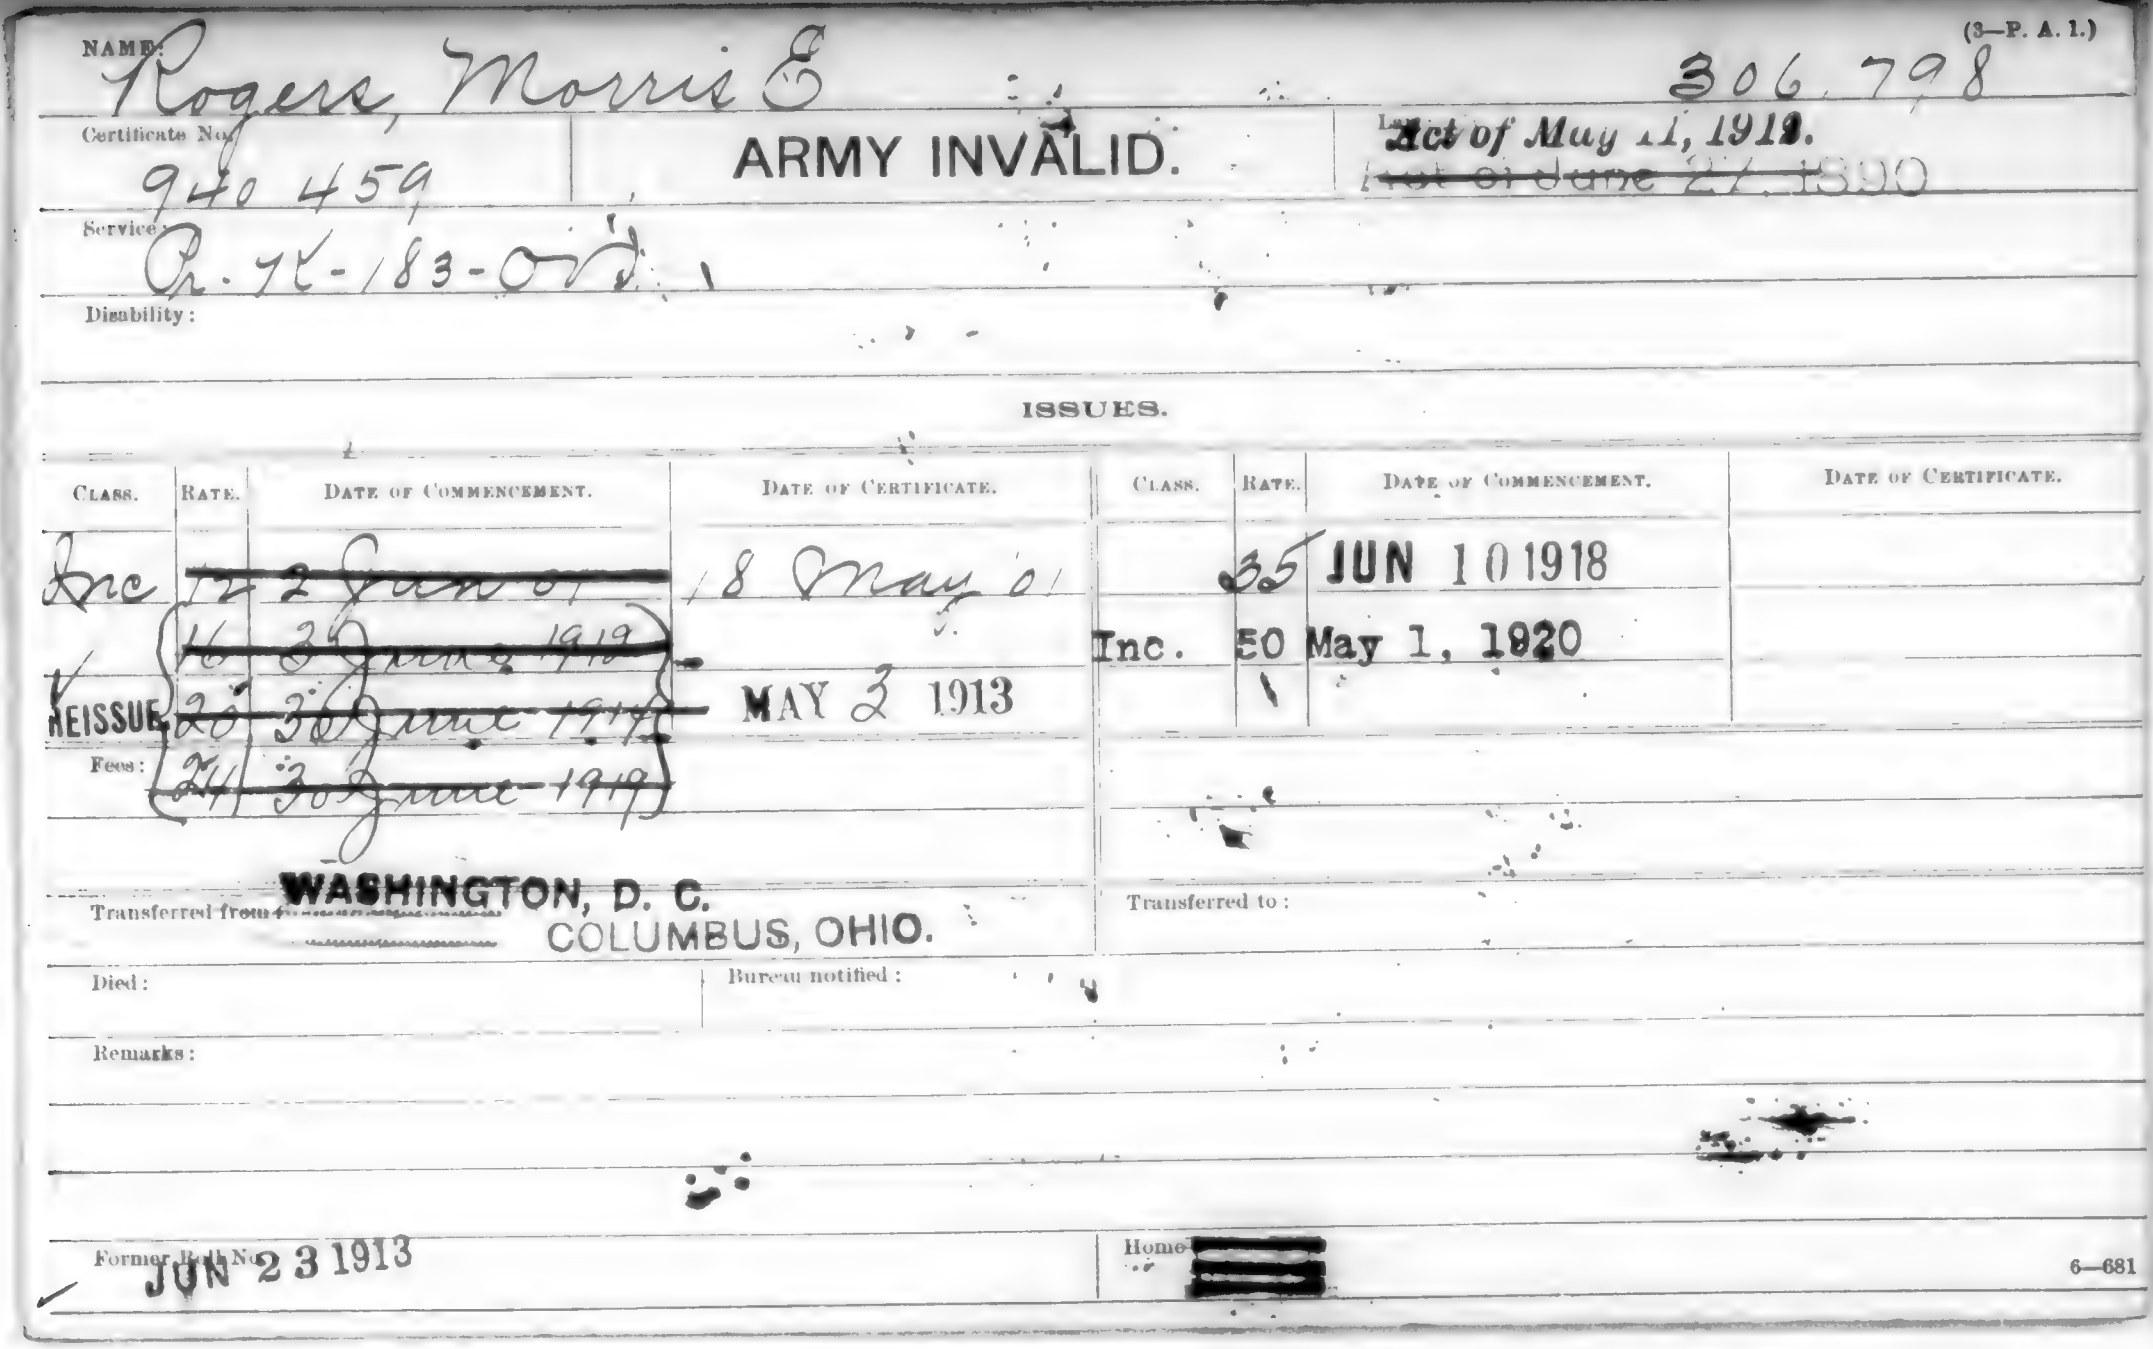 (3—P. A. 1.)
NAME: Rogers, Morris E 306,798
Certificate No. 940 459
ARMY INVALID.
Law: Act of May 11, 1912.
Act of June 27, 1890
Service: Pr. K-183-O
Disability:
ISSUES.
CLASS. RATE. DATE OF COMMENCEMENT. DATE OF CERTIFICATE. CLASS. RATE. DATE OF COMMENCEMENT. DATE OF CERTIFICATE.
Inc 12 2 Jan 01 18 May '01 35 JUN 10 1918
16 3 June 1912 Inc. 50 May 1, 1920
REISSUE 20 30 June 1914 MAY 3 1913
Fees: 24 30 June 1919
Transferred from: WASHINGTON, D. C. Transferred to:
COLUMBUS, OHIO.
Died: Bureau notified:
Remarks:
Former Roll No. JUN 23 1913 Home
6—681